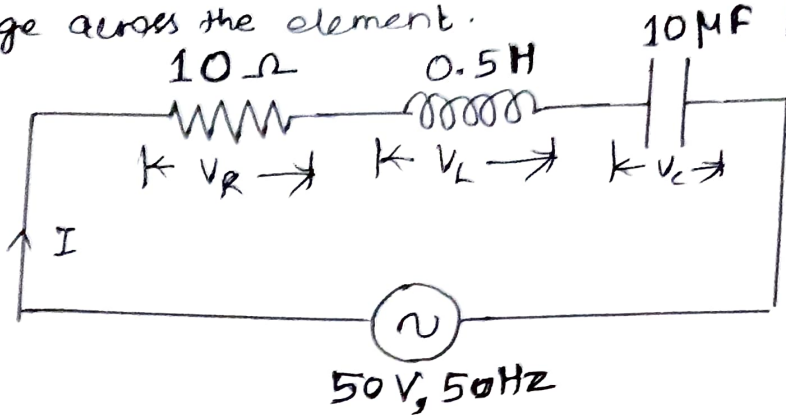 ge across the element.
10 Ω 0.5H 10 μF
V_R V_L V_C
I
50 V, 50HZ